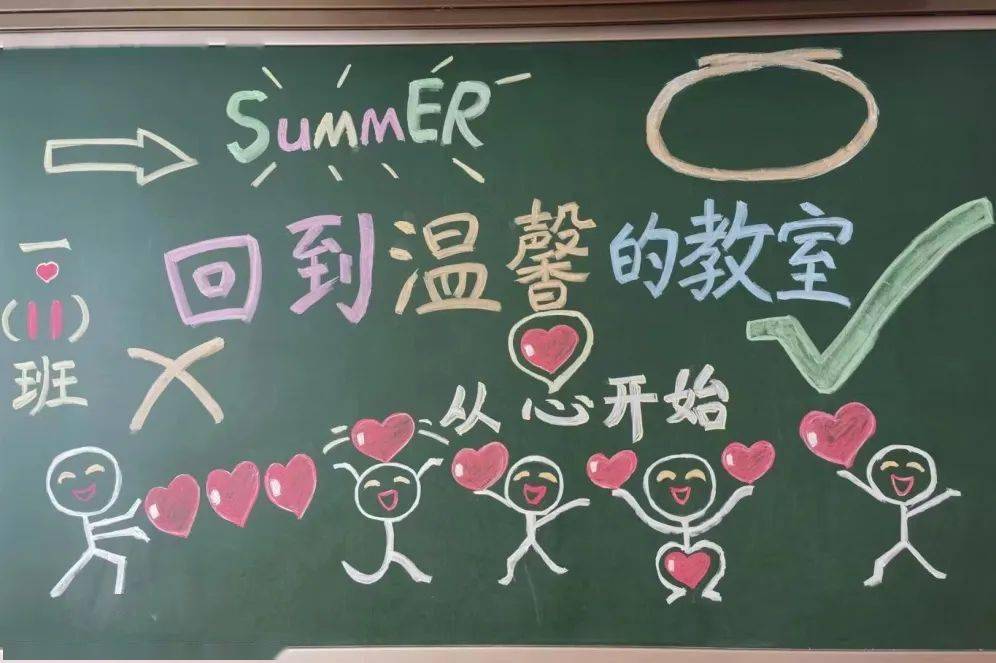 SummER
回到温馨的教室
一
(II)
班
从心开始